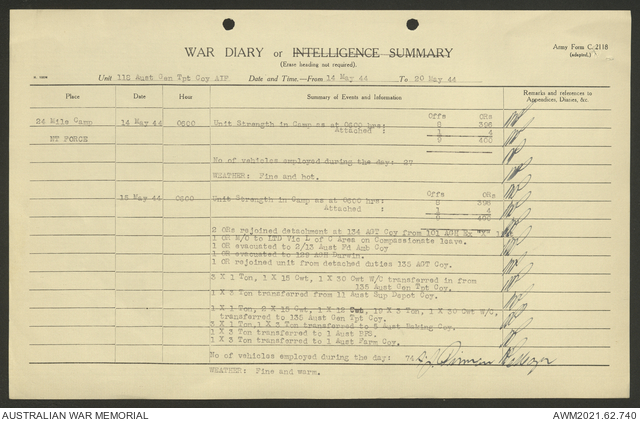 Army Form C. 2118
(adapted.)
WAR DIARY or INTELLIGENCE SUMMARY
(Erase heading not required).
Unit 112 Aust Gen Tpt Coy AIF Date and Time.—From 14 May 44 To 20 May 44
Place Date Hour Summary of Events and Information Remarks and references to Appendices, Diaries, &c.
Offs ORs
24 Mile Camp 14 May 44 0600 Unit Strength in Camp as at 0600 hrs: 9 396
Attached : 1 4
NT FORCE 9 400
No of vehicles employed during the day: 27
WEATHER: Fine and hot.
Offs ORs
15 May 44 0600 Unit Strength in Camp as at 0600 hrs: 9 396
Attached : 1 4
9 400
2 ORs rejoined detachment at 134 AGT Coy from 101 AGH
1 OR M/O to LTD Vic L of C Area on Compassionate leave.
1 OR evacuated to 2/13 Aust Fd Amb Coy
1 OR evacuated to 129 AGH Darwin.
1 OR rejoined unit from detached duties 135 AGT Coy.
3 X 1 Ton, 1 X 15 Cwt, 1 X 30 Cwt W/C transferred in from
135 Aust Gen Tpt Coy.
1 X 3 Ton transferred from 11 Aust Sup Depot Coy.
1 X 1 Ton, 2 X 15 Cwt, 1 X 12 Cwt, 12 X 3 Ton, 1 X 30 Cwt W/C,
transferred to 135 Aust Gen Tpt Coy.
3 X 1 Ton, 1 X 3 Ton transferred to 5 Aust Baking Coy.
1 X 3 Ton transferred to 1 Aust BPS.
1 X 3 Ton transferred to 1 Aust Farm Coy.
No of vehicles employed during the day: 74
WEATHER: Fine and warm.
AUSTRALIAN WAR MEMORIAL
AWM2021.62.740